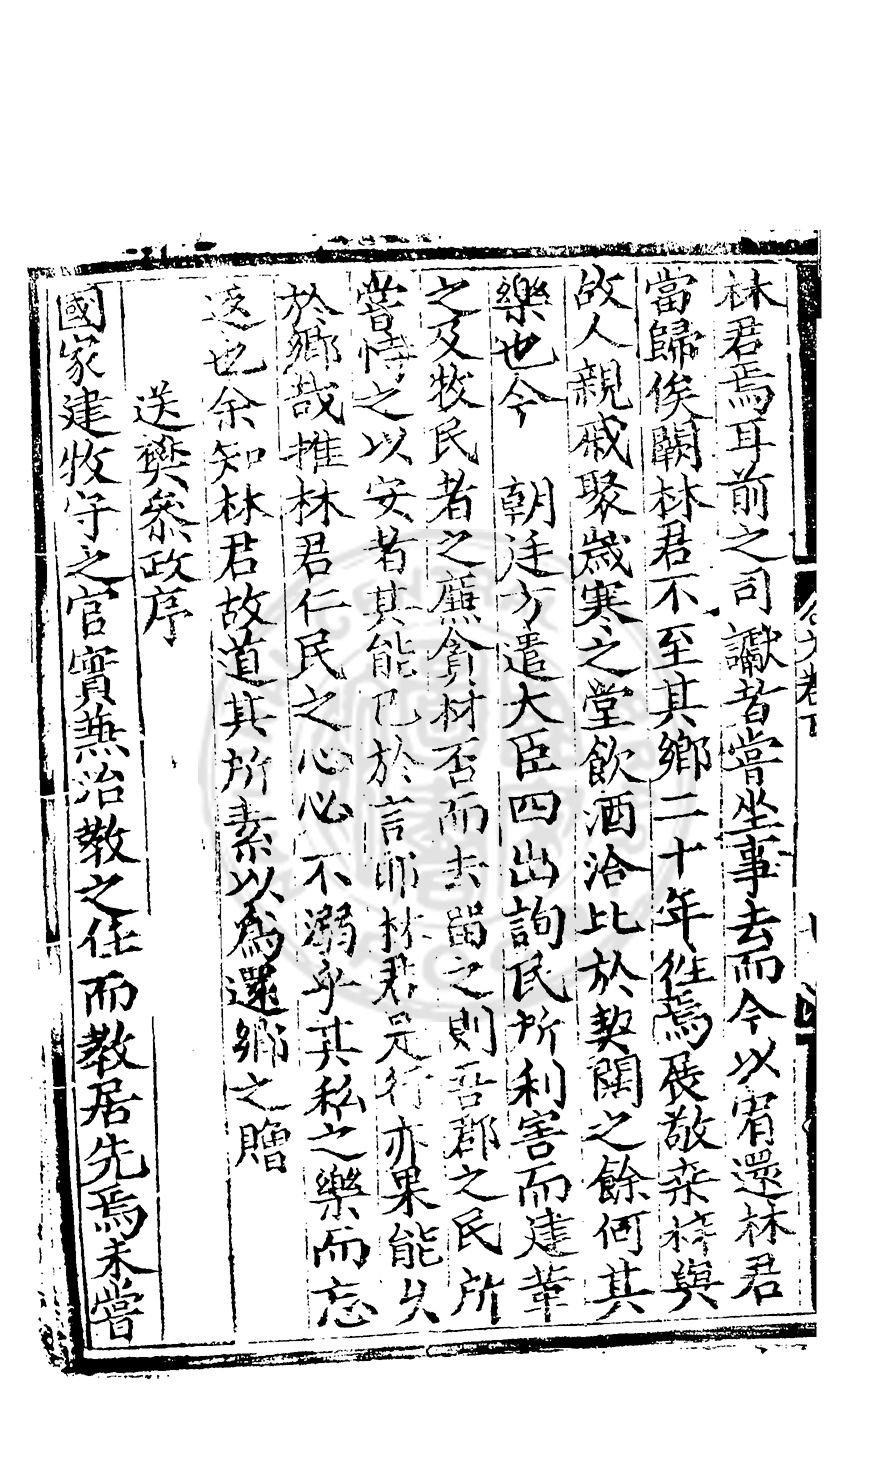 林君焉耳前之司讞者嘗坐事去而今以宥還林君
當歸俟闕林君不至其鄉二十年徃焉展敬桒梓與
故人親戚聚嵗寒之堂飲酒洽比於契闊之餘何其
樂也今 朝廷方遣大臣四出詢民所利害而建革
之及牧民者之廉貪材否而去畱之則吾郡之民所
嘗恃之以安者其能已於言耶林君是行亦果能久
於鄉哉推林君仁民之心必不溺乎其私之樂而忘
返也余知林君故道其所素以爲還鄉之贈
送樊叅政序
國家建牧守之官實兼治教之任而教居先焉未嘗
卷下